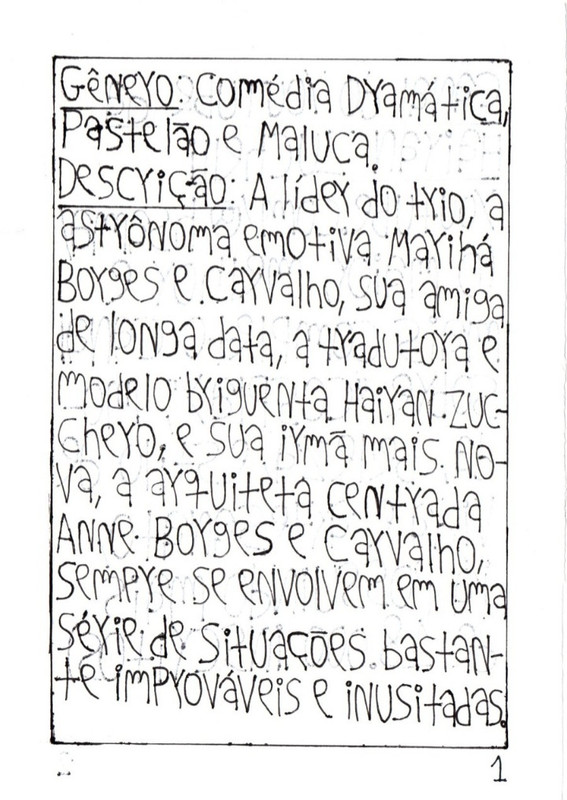 Gênero: Comédia Dramática,
Pastelão e Maluca.
Descrição: A líder do trio, a
astrônoma emotiva Marihá
Borges e Carvalho, sua amiga
de longa data, a tradutora e
modelo briguenta Haiyan Zuc-
chero, e sua irmã mais no-
va, a arquiteta centrada
Anne Borges e Carvalho,
sempre se envolvem em uma
série de situações bastan-
te improváveis e inusitadas.
1